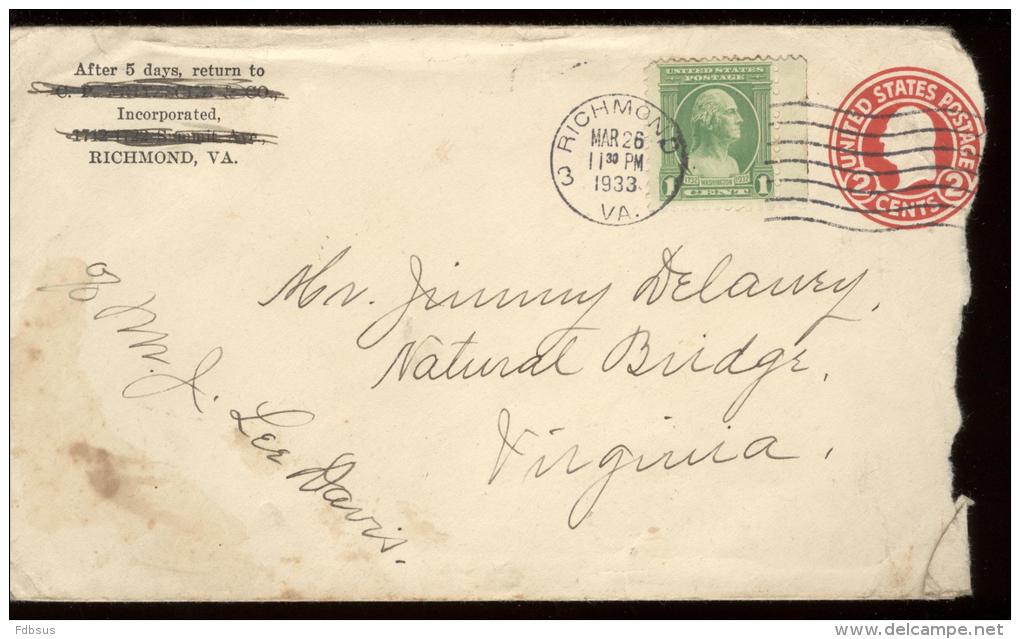 After 5 days, return to
Incorporated,
RICHMOND, VA.
RICHMOND
MAR 26
11 30 PM
1933
VA.
3
UNITED STATES
POSTAGE
1732 WASHINGTON 1932
1 CENT 1
UNITED STATES POSTAGE
2 CENTS 2
Mr. Jimmy Delaney,
Natural Bridge,
Virginia.
c/o Mr. J. Lee Davis.
Fdbsus
delcampe.net